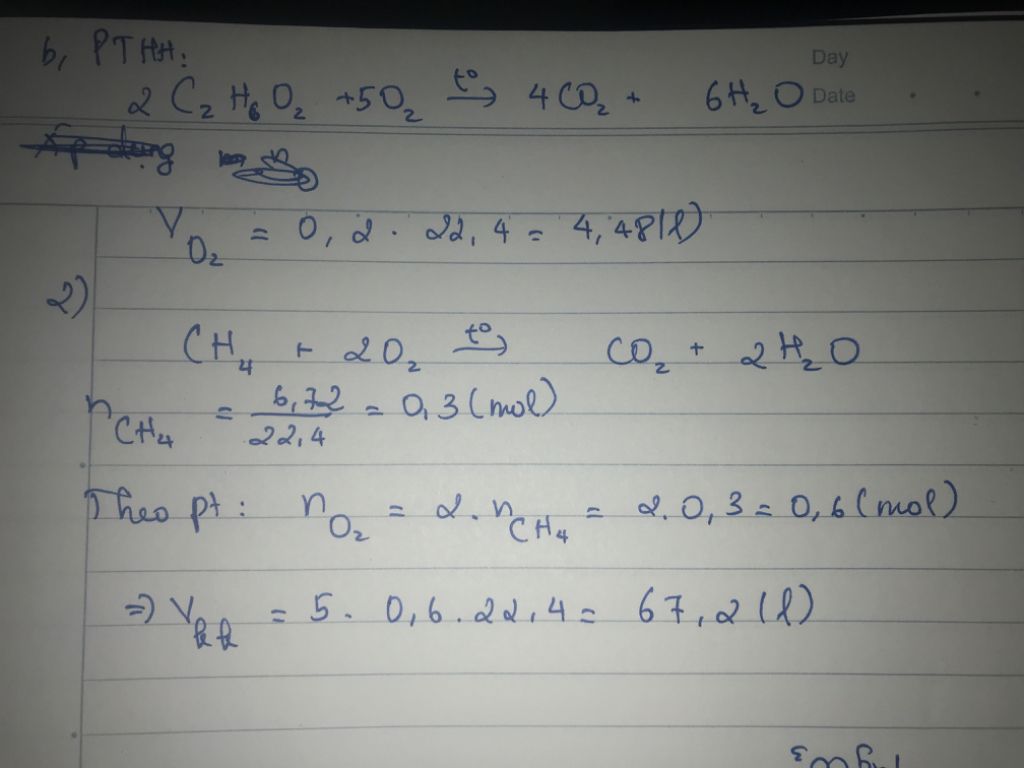 b, PTHH:
Day
2 C₂H₆O₂ + 5O₂ t° → 4CO₂ + 6H₂O
Date
V O₂ = 0,2 . 22,4 = 4,48 (l)
2)
CH₄ + 2O₂ t° → CO₂ + 2H₂O
n CH₄ = 6,72 / 22,4 = 0,3 (mol)
Theo pt: n O₂ = 2. n CH₄ = 2. 0,3 = 0,6 (mol)
=) V kk = 5. 0,6. 22,4 = 67,2 (l)